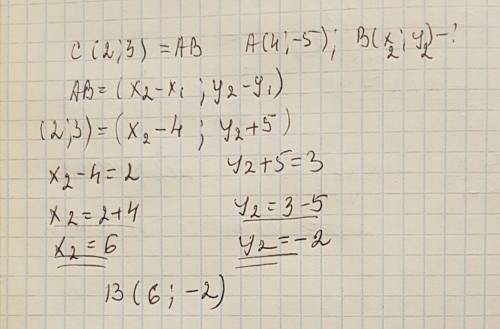 C (2;3) = AB A(4;-5); B(x₂; y₂)-?
AB=(x₂-x₁ ; y₂-y₁)
(2;3)=(x₂-4 ; y₂+5)
x₂-4=2 y₂+5=3
x₂=2+4 y₂=3-5
x₂=6 y₂=-2
B(6; -2)